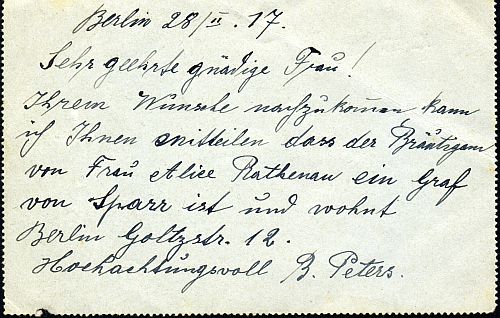 Berlin 28/II. 17.
Sehr geehrte gnädige Frau!
Ihrem Wunsche nachzukommen, kann
ich Ihnen mitteilen dass der Bräutigam
von Frau Alice Rathenau ein Graf
von Sparr ist und wohnt
Berlin Goltzstr. 12.
Hochachtungsvoll B. Peters.